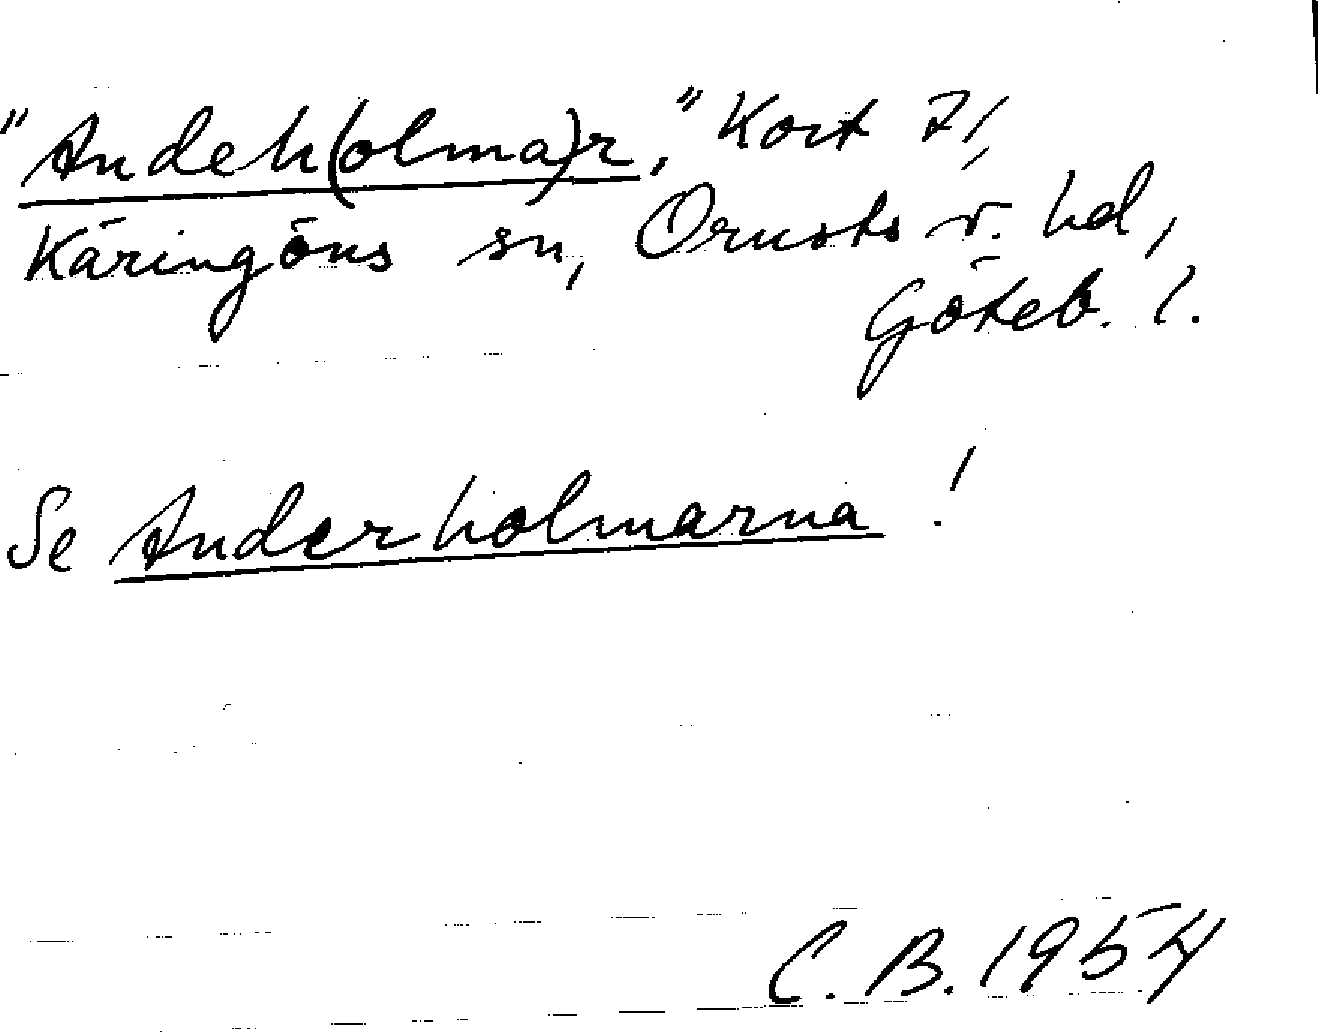 "Andeh(olma)r," Kort 71,
Käringöns sn, Orusts v. hd,
Göteb. l.
Se Anderholmarna!
C. B. 1954